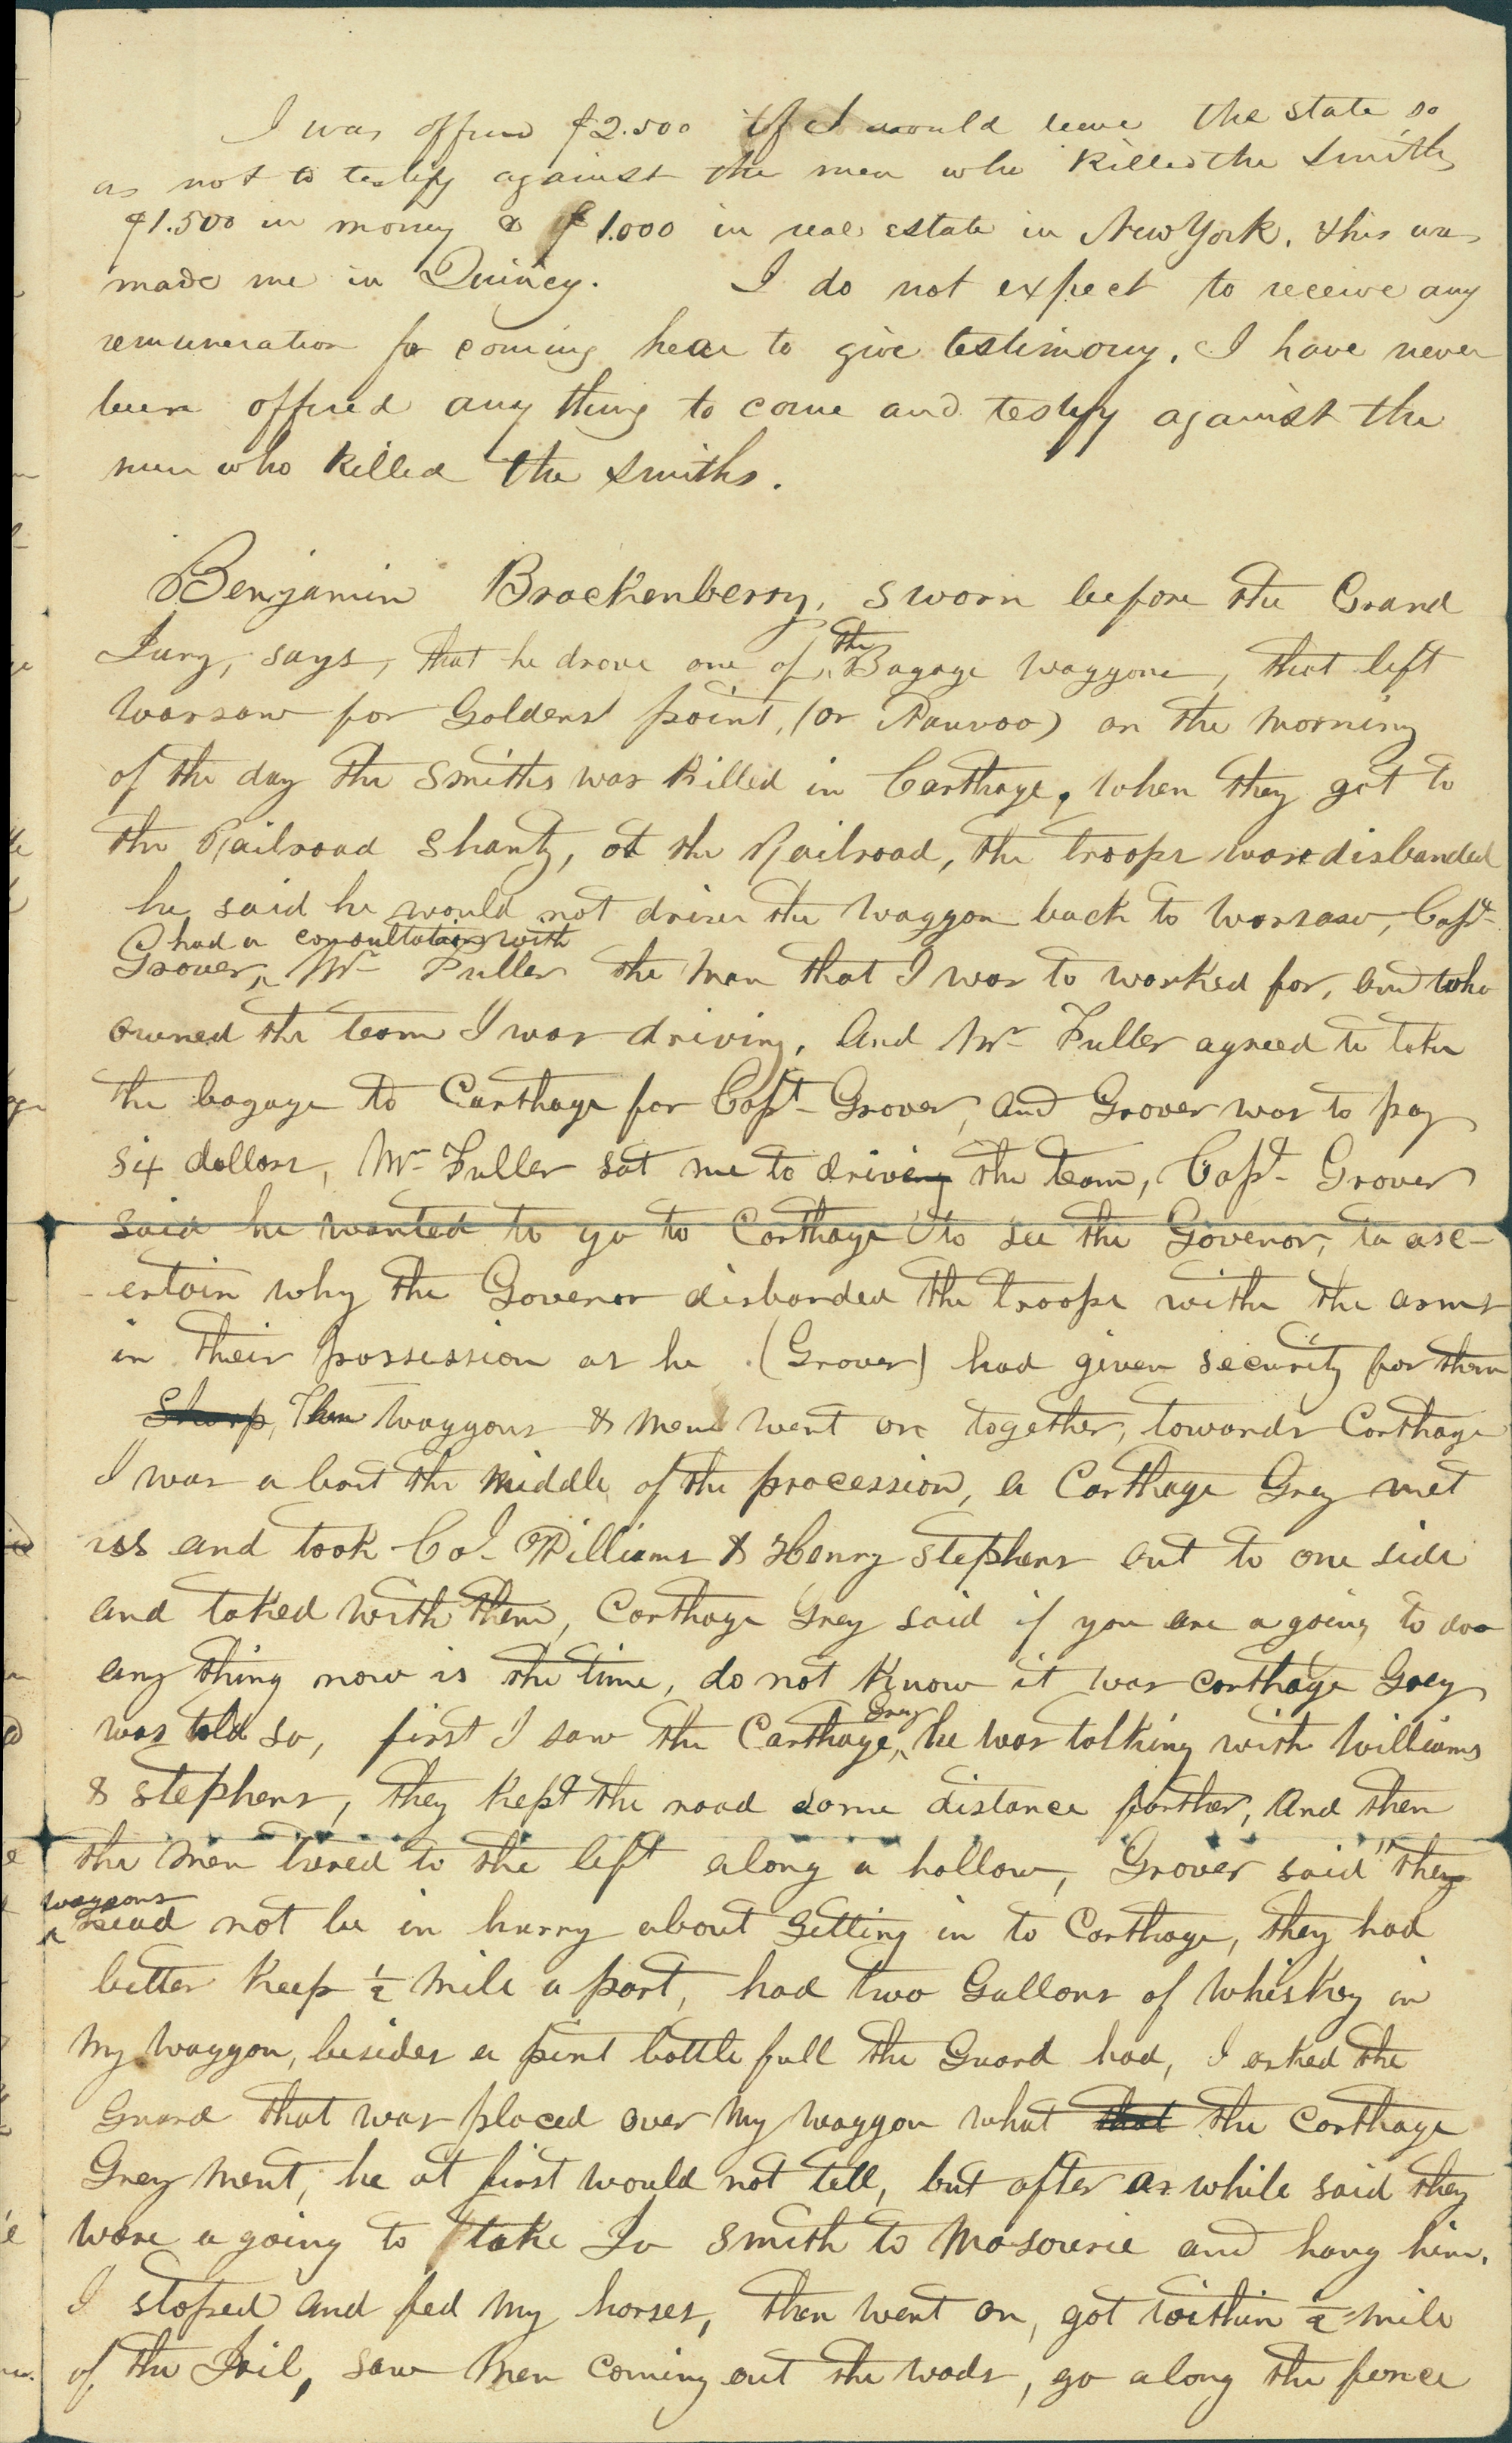 I was offered $2.500 if I would leave the state so
as not to testify against the men who killed the Smiths
$1.500 in money & $1.000 in real estate in New York. this was
made me in Quincy. I do not expect to receive any
remuneration for coming hear to give testimony. I have never
been offered any thing to come and testify against the
men who killed the Smiths.
Benjamin Brackenberry, sworn before the Grand
Jury, says, that he drove one of the Bagage waggons, that left
Warsaw for Goldens point, (or Nauvoo) on the morning
of the day the Smiths was killed in Carthage, when they got to
the Railroad Shanty, at the Railroad, the troops ware disbanded
he said he would not drive the waggon back to Warsaw, Capt-
Grover, had a consultation with Mr Fuller the man that I was to worked for, and who
owned the team I was driving. And Mr Fuller agreed to take
the bagage to Carthage for Capt- Grover, and Grover was to pay
six dollars, Mr Fuller sat me to driveing the team, Capt- Grover
said he wanted to go to Carthage to see the Govenor, to asc-
-ertain why the Govenor disbanded the troops withe the arms
in their possession as he (Grover) had given security for them
Sharp, Then waggons & men went on together, towards Carthage
I was a bout the middle of the procession, a Carthage Grey met
uss and took Col- Williams & Henry Stephens out to one side
and talked with them, Carthage Grey said if you are a going to doo
any thing now is the time, do not know it was Carthage Grey
was told so, first I saw the Carthage Grey, he was talking with Williams
& Stephens, they kept the road some distance farther, and then
the men turned to the left along a hollow, Grover said "they
waggons nead not be in hurry about getting in to Carthage, they had
better keep ½ mile a part, had two Gallons of whiskey in
my waggon, besides a pint bottle full the Guard had, I asked the
Guard that was placed over my waggon what that the Carthage
Grey ment, he at first would not tell, but after a while said they
ware a going to take Jo Smith to Masourie and hang him.
I stoped and fed my horses, then went on, got within ½ mile
of the Jail, saw men coming out the wods, go along the fence